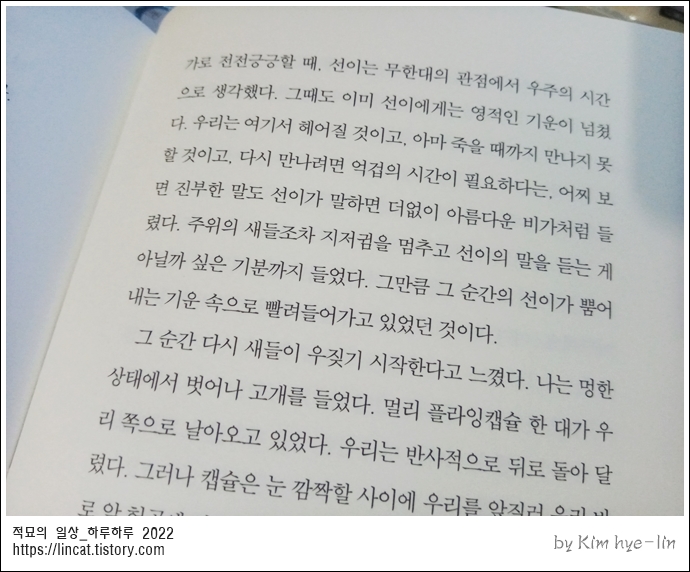 가로 전전긍긍할 때, 선이는 무한대의 관점에서 우주의 시간
으로 생각했다. 그때도 이미 선이에게는 영적인 기운이 넘쳤
다. 우리는 여기서 헤어질 것이고, 아마 죽을 때까지 만나지 못
할 것이고, 다시 만나려면 억겁의 시간이 필요하다는, 어찌 보
면 진부한 말도 선이가 말하면 더없이 아름다운 비가처럼 들
렸다. 주위의 새들조차 지저귐을 멈추고 선이의 말을 듣는 게
아닐까 싶은 기분까지 들었다. 그만큼 그 순간의 선이가 뿜어
내는 기운 속으로 빨려들어가고 있었던 것이다.
그 순간 다시 새들이 우짖기 시작한다고 느꼈다. 나는 멍한
상태에서 벗어나 고개를 들었다. 멀리 플라잉캡슐 한 대가 우
리 쪽으로 날아오고 있었다. 우리는 반사적으로 뒤로 돌아 달
렸다. 그러나 캡슐은 눈 깜짝할 사이에 우리를 앞질러 우리
적묘의 일상_하루하루 2022
https://lincat.tistory.com
by Kim hye-lin